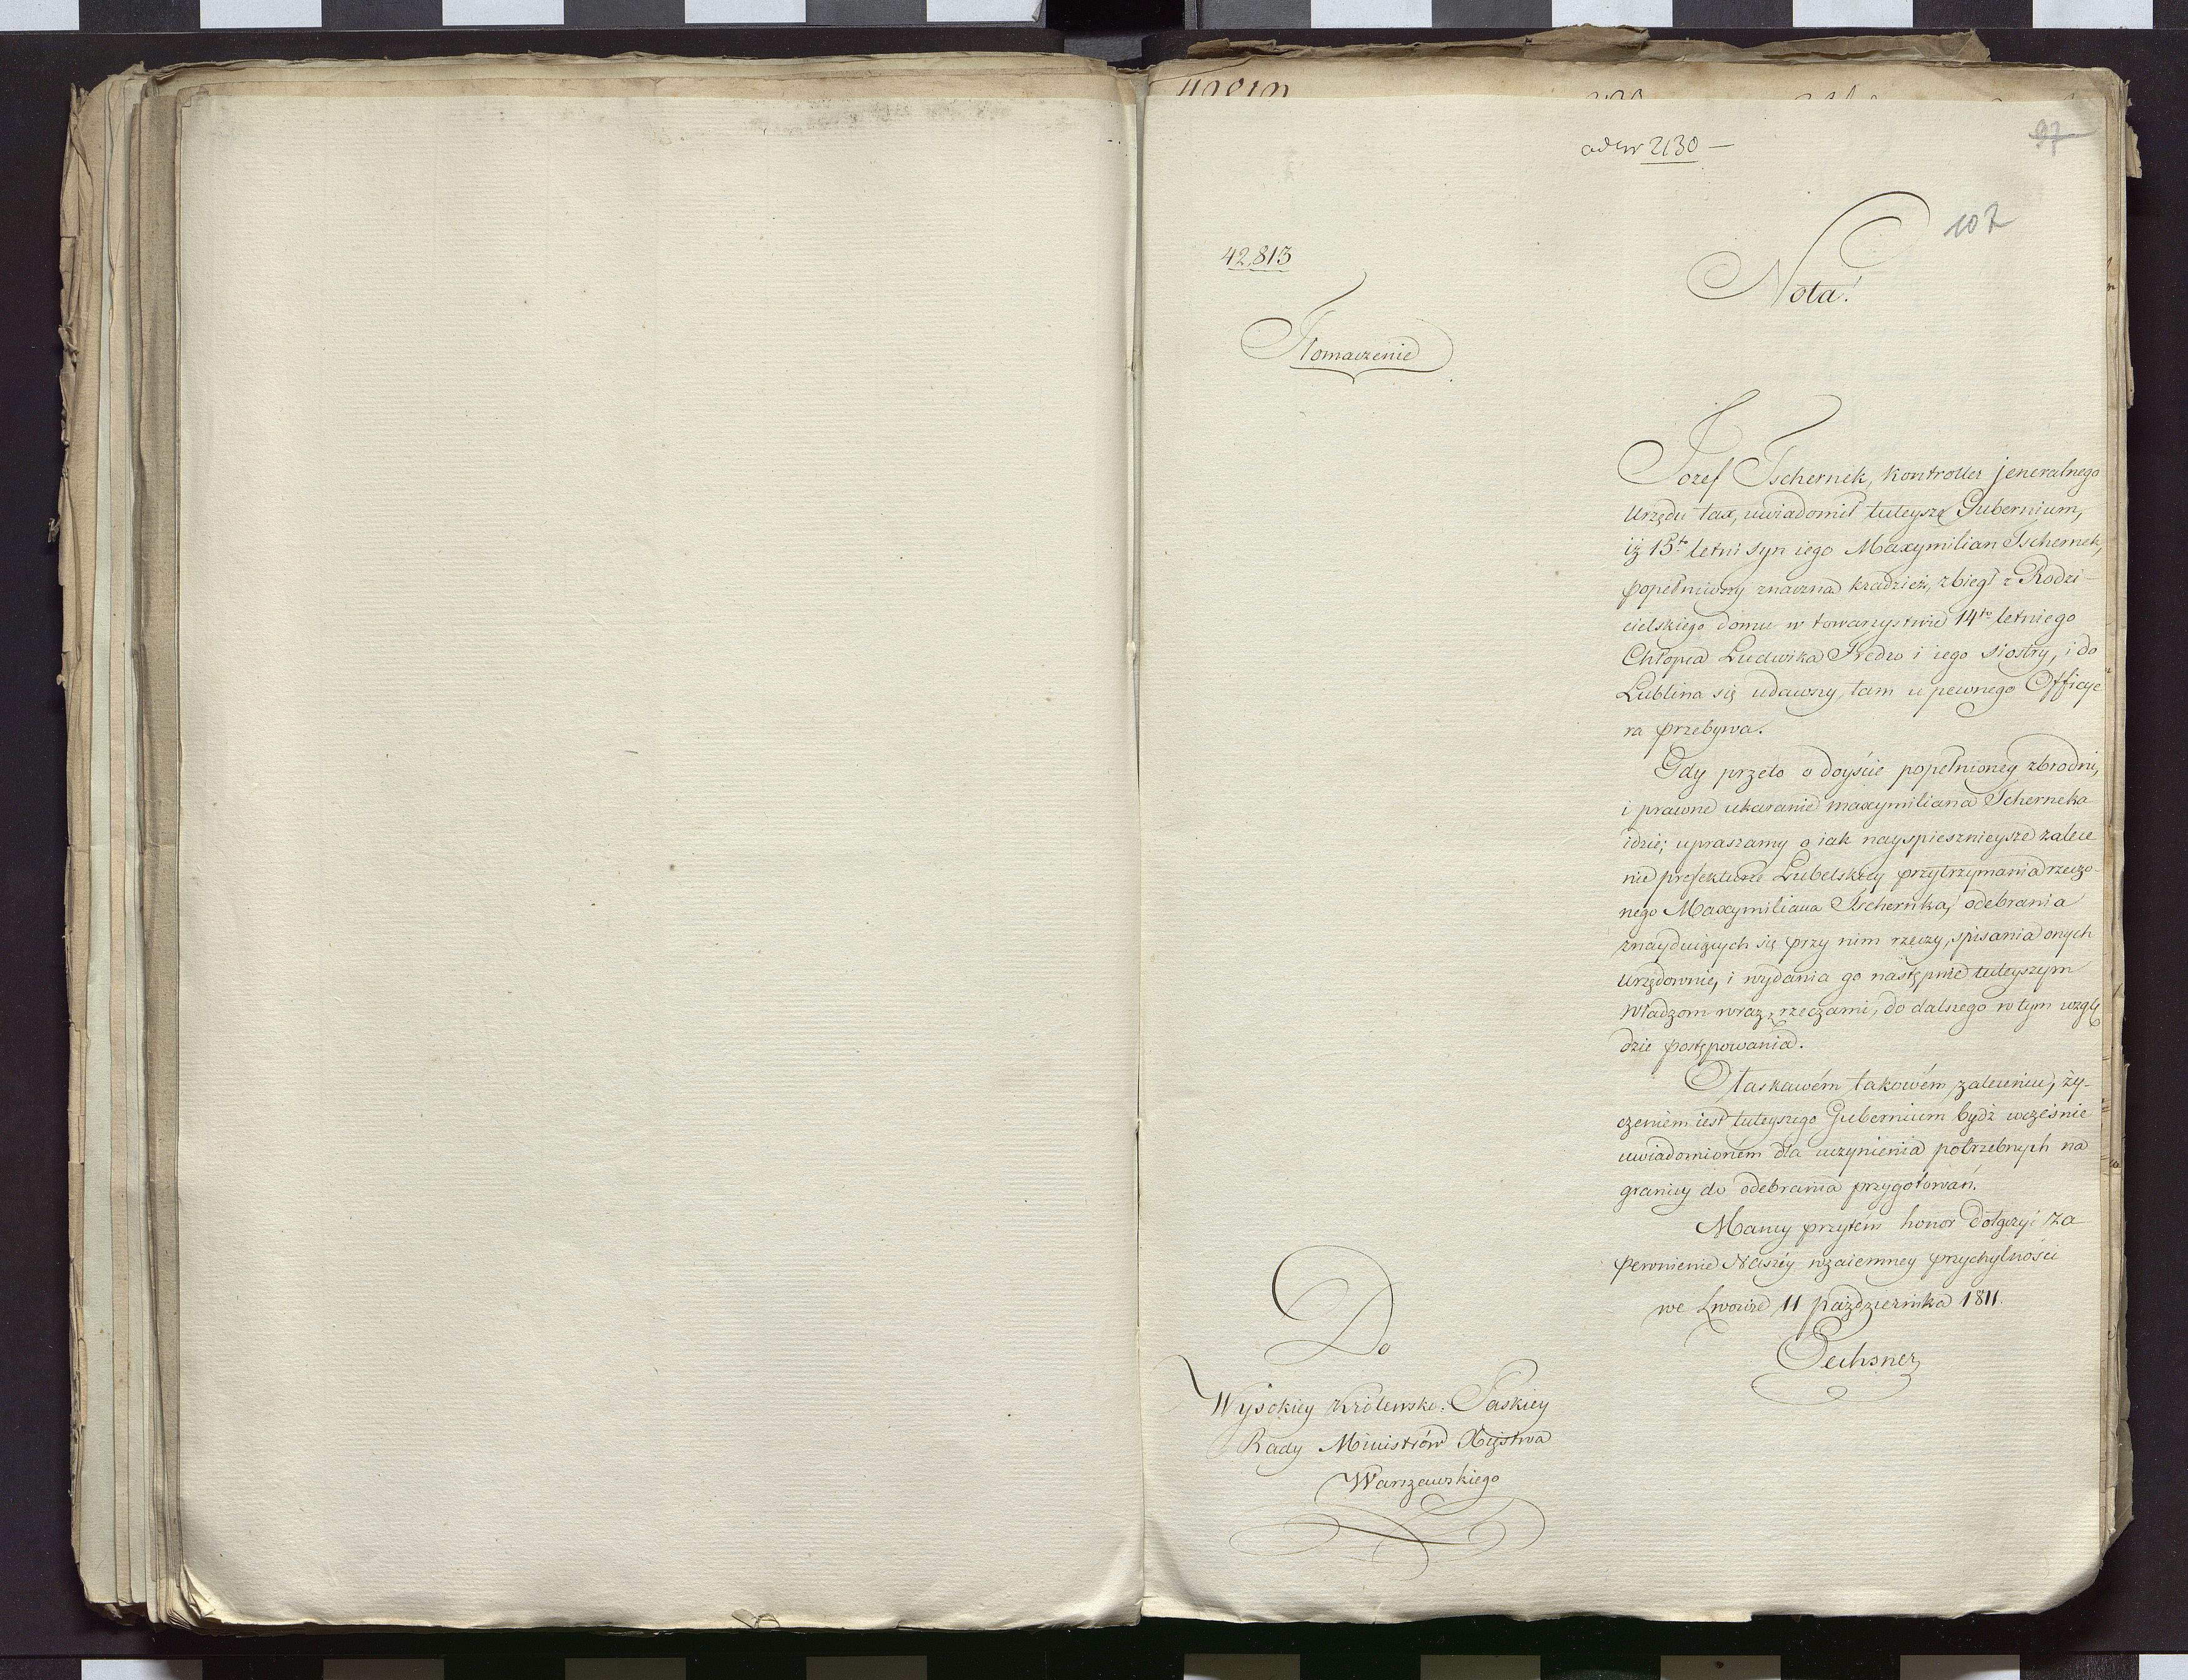 ad Nr 2130 —
97
107
42,813
Nota!
Tłomaczenie
Jozef Tschernek, Kontroller jeneralnego
Urzędu tax, uwiadomił tuteysze Gubernium,
iż 15to letni syn iego Maxymilian Tschernek,
popełniwszy znaczną kradzież, zbiegł z Rodzi-
cielskiego domu w towarzystwie 14to letniego
Chłopca Ludwika Fredro i iego siostry, i do
Lublina się udawszy, tam u pewnego Officye
ra przebywa.
Gdy przeto o doyście popełnioney zbrodni,
i prawne ukaranie maxymiliana Tscherneka
idzie; upraszamy o iak nayspiesznieysze zalece
nie prefekturze Lubelskiey przytrzymania rzeczo-
nego Maxymiliana Tschernka, odebrania
znayduiących się przy nim rzeczy, spisania onych
urzędownie, i wydania go następnie tuteyszym
Władzom wraz z rzeczami, do dalszego w tym wzglę
dzie postępowania.
O łaskawém takowém zaleceniu, ży-
czeniem iest tuteyszego Gubernium bydź wcześnie
uwiadomioném dla uczynienia potrzebnych na
granicy do odebrania przygotowań.
Mamy przytém honor dołączyć za
pewnienie Naszéy wzaiemney przychylności
we Lwowie 11 października 1811.
Oechsner
Do
Wysokiey Królewsko: Saskiey
Rady Ministrów Xięstwa
Warszawskiego